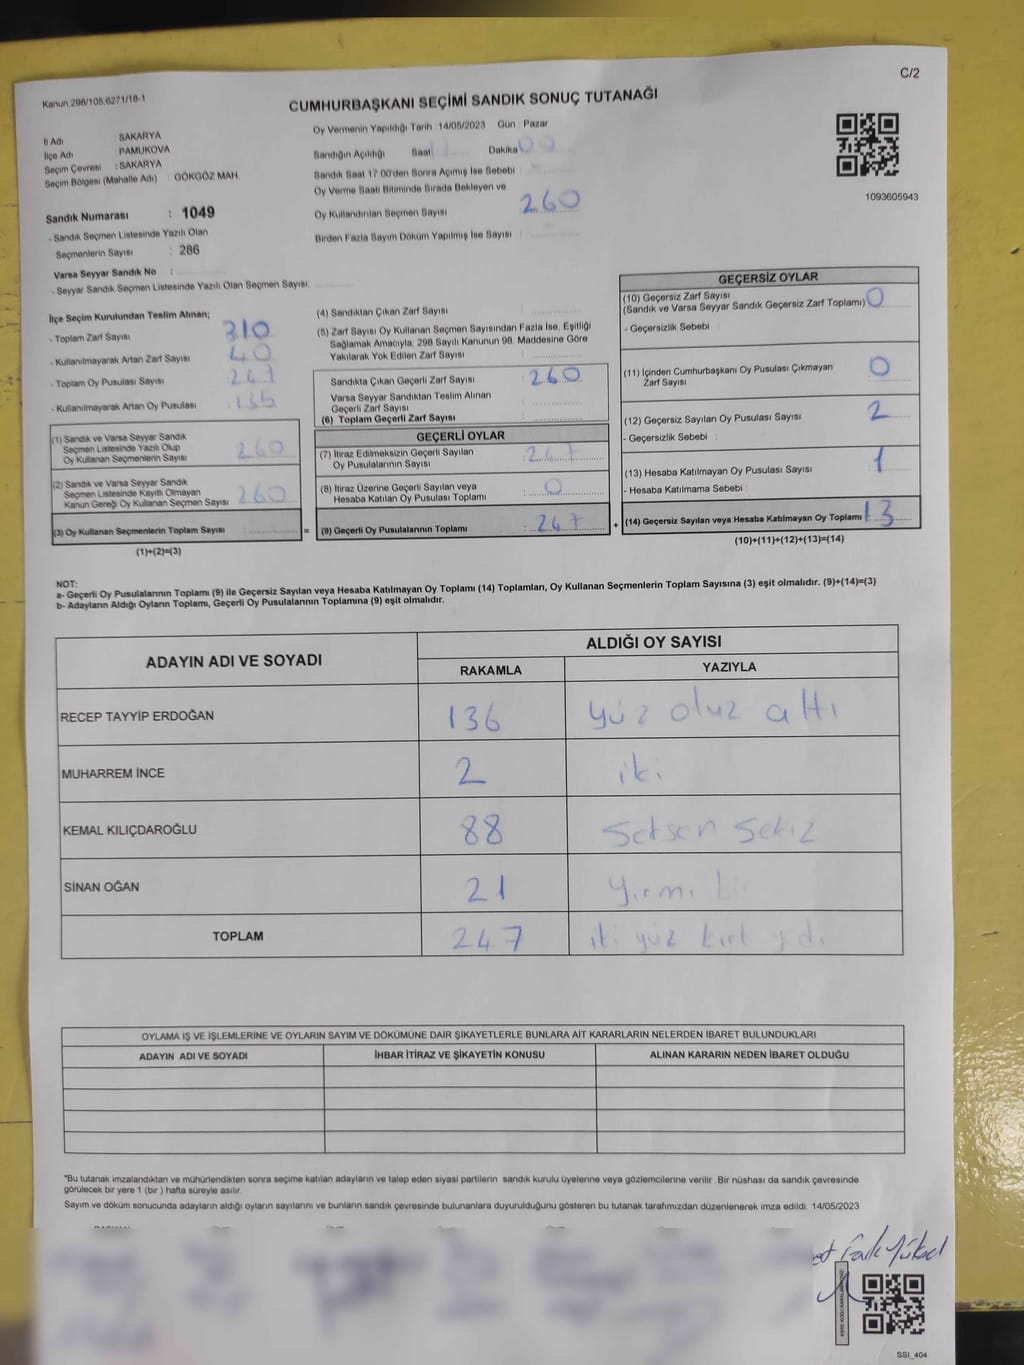 C/2
Kanun.298/105,6271/18-1
CUMHURBAŞKANI SEÇİMİ SANDIK SONUÇ TUTANAĞI
İl Adı SAKARYA
İlçe Adı PAMUKOVA
Seçim Çevresi : SAKARYA
Seçim Bölgesi (Mahalle Adı) : GÖKGÖZ MAH.
Sandık Numarası : 1049
- Sandık Seçmen Listesinde Yazılı Olan
Seçmenlerin Sayısı : 286
Varsa Seyyar Sandık No :
- Seyyar Sandık Seçmen Listesinde Yazılı Olan Seçmen Sayısı:
Oy Vermenin Yapıldığı Tarih :14/05/2023 Gün : Pazar
Sandığın Açıldığı Saat Dakika 00
Sandık Saat 17:00'den Sonra Açımış İse Sebebi :
Oy Verme Saati Bitiminde Sırada Bekleyen ve
Oy Kullandırılan Seçmen Sayısı 260
Birden Fazla Sayım Döküm Yapılmış İse Sayısı :
1093605943
İlçe Seçim Kurulundan Teslim Alınan;
- Toplam Zarf Sayısı 310
- Kullanılmayarak Artan Zarf Sayısı 40
- Toplam Oy Pusulası Sayısı 247
- Kullanılmayarak Artan Oy Pusulası : 135
(1) Sandık ve Varsa Seyyar Sandık
Seçmen Listesinde Yazılı Olup
Oy Kullanan Seçmenlerin Sayısı 260
(2) Sandık ve Varsa Seyyar Sandık
Seçmen Listesinde Kayıtlı Olmayan
Kanun Gereği Oy Kullanan Seçmen Sayısı 260
(3) Oy Kullanan Seçmenlerin Toplam Sayısı =
(1)+(2)=(3)
(4) Sandıktan Çıkan Zarf Sayısı
(5) Zarf Sayısı Oy Kullanan Seçmen Sayısından Fazla İse, Eşitliği
Sağlamak Amacıyla, 298 Sayılı Kanunun 98. Maddesine Göre
Yakılarak Yok Edilen Zarf Sayısı
Sandıkta Çıkan Geçerli Zarf Sayısı : 260
Varsa Seyyar Sandıktan Teslim Alınan
Geçerli Zarf Sayısı
(6) Toplam Geçerli Zarf Sayısı :
GEÇERLİ OYLAR
(7) İtiraz Edilmeksizin Geçerli Sayılan
Oy Pusulalarının Sayısı : 247
(8) İtiraz Üzerine Geçerli Sayılan veya
Hesaba Katılan Oy Pusulası Toplamı : 0
(9) Geçerli Oy Pusulalarının Toplamı : 247 +
GEÇERSİZ OYLAR
(10) Geçersiz Zarf Sayısı
(Sandık ve Varsa Seyyar Sandık Geçersiz Zarf Toplamı) 0
- Geçersizlik Sebebi :
(11) İçinden Cumhurbaşkanı Oy Pusulası Çıkmayan
Zarf Sayısı 0
(12) Geçersiz Sayılan Oy Pusulası Sayısı 2
- Geçersizlik Sebebi :
(13) Hesaba Katılmayan Oy Pusulası Sayısı 1
- Hesaba Katılmama Sebebi
(14) Geçersiz Sayılan veya Hesaba Katılmayan Oy Toplamı 13
(10)+(11)+(12)+(13)=(14)
NOT:
a- Geçerli Oy Pusulalarının Toplamı (9) ile Geçersiz Sayılan veya Hesaba Katılmayan Oy Toplamı (14) Toplamları, Oy Kullanan Seçmenlerin Toplam Sayısına (3) eşit olmalıdır. (9)+(14)=(3)
b- Adayların Aldığı Oyların Toplamı, Geçerli Oy Pusulalarının Toplamına (9) eşit olmalıdır.
ADAYIN ADI VE SOYADI ALDIĞI OY SAYISI
RAKAMLA YAZIYLA
RECEP TAYYİP ERDOĞAN 136 yüz otuz altı
MUHARREM İNCE 2 iki
KEMAL KILIÇDAROĞLU 88 Seksen Sekiz
SİNAN OĞAN 21 Yirmi bir
TOPLAM 247 iki yüz kırk yedi
OYLAMA İŞ VE İŞLEMLERİNE VE OYLARIN SAYIM VE DÖKÜMÜNE DAİR ŞİKAYETLERLE BUNLARA AİT KARARLARIN NELERDEN İBARET BULUNDUKLARI
ADAYIN ADI VE SOYADI İHBAR İTİRAZ VE ŞİKAYETİN KONUSU ALINAN KARARIN NEDEN İBARET OLDUĞU
*Bu tutanak imzalandıktan ve mühürlendikten sonra seçime katılan adayların ve talep eden siyasi partilerin sandık kurulu üyelerine veya gözlemcilerine verilir .Bir nüshası da sandık çevresinde
görülecek bir yere 1 (bir ) hafta süreyle asılır.
Sayım ve döküm sonucunda adayların aldığı oyların sayılarını ve bunların sandık çevresinde bulunanlara duyurulduğunu gösteren bu tutanak tarafımızdan düzenlenerek imza edildi. 14/05/2023
Yüksel
SSI_404